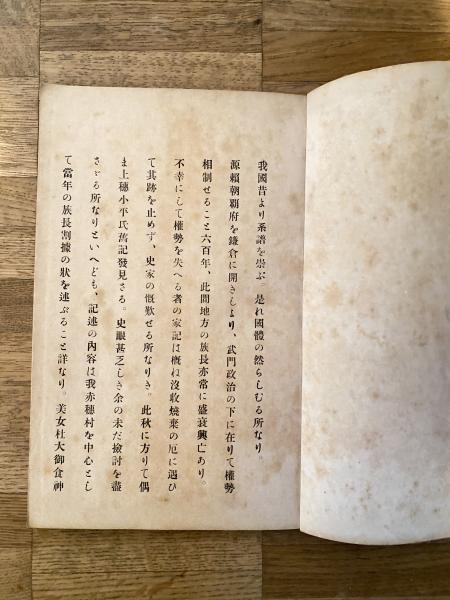 我國昔より系譜を崇ぶ。是れ國體の然らしむる所なり。
源賴朝覇府を鎌倉に開きしより、武門政治の下に在りて權勢
相制せること六百年、此間地方の族長亦常に盛衰興亡あり。
不幸にして權勢を失へる者の家記は概ね沒收燒棄の厄に遇ひ
て其跡を止めず、史家の慨歎せる所なりき。此秋に方りて偶
ま上穗小平氏舊記發見さる。史眼甚乏しき余の未だ檢討を盡
さゞる所なりといへども、記述の內容は我赤穗村を中心とし
て當年の族長割據の狀を述ぶること詳なり。美女杜大御食神